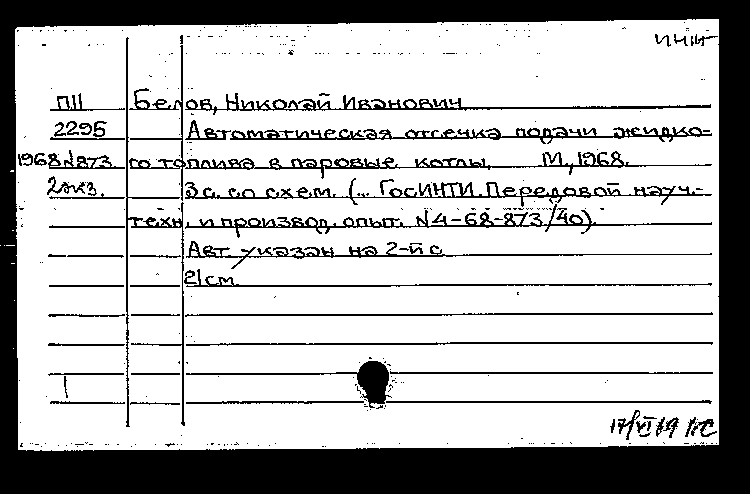 ИНИ
П11 Белов, Николай Иванович
2295 Автоматическая отсечка подачи жидко-
1968 N873 го топлива в паровые котлы. М., 1968.
2 экз. 3 с. со схем. (... ГосИНТИ. Передовой науч.-
техн. и производ. опыт. N4-68-873/40).
Авт. указан на 2-й с.
21 см.
17/VI 69